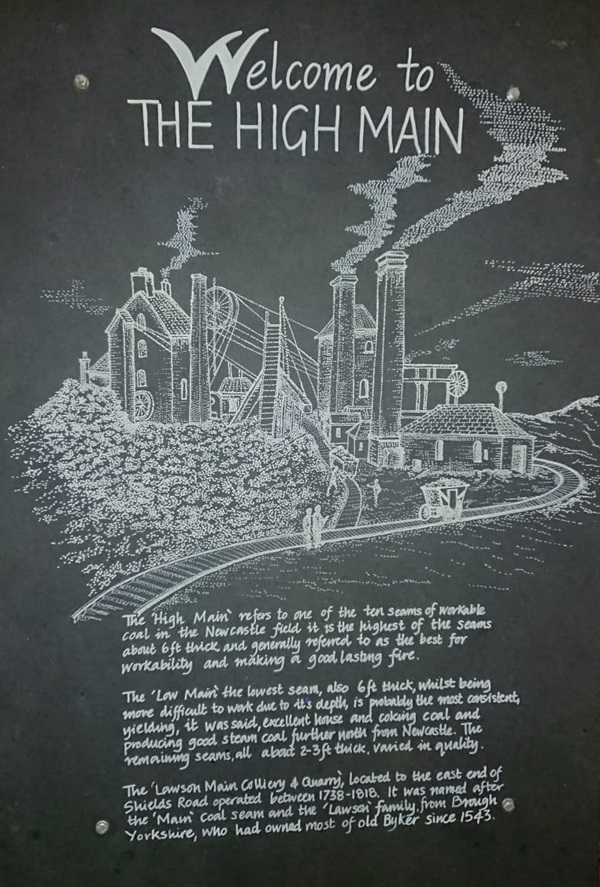 Welcome to
THE HIGH MAIN
The 'High Main' refers to one of the ten seams of workable
coal in the Newcastle field it is the highest of the seams
about 6ft thick and generally referred to as the best for
workability and making a good lasting fire.
The 'Low Main' the lowest seam, also 6ft thick, whilst being
more difficult to work due to it's depth, is probably the most consistent,
yielding, it was said, excellent house and coking coal and
producing good steam coal further north from Newcastle. The
remaining seams, all about 2-3ft thick, varied in quality.
The 'Lawson Main Colliery & Quarry', located to the east end of
Shields Road operated between 1738-1818. It was named after
the 'Main' coal seam and the 'Lawson' family, from Brough
Yorkshire, who had owned most of old Byker since 1543.